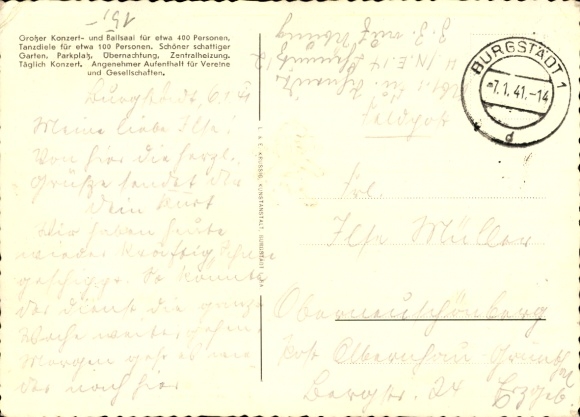 15,-
Großer Konzert- und Ballsaal für etwa 400 Personen,
Tanzdiele für etwa 100 Personen. Schöner schattiger
Garten, Parkplatz, Übernachtung, Zentralheizung.
Täglich Konzert. Angenehmer Aufenthalt für Vereine
und Gesellschaften.
Burgstädt, 6.1.41
Meine liebe Ilse!
Von hier die herzl.
Grüße sendet dir
dein Kurt
Wir haben heute
wieder kräftig Schnee
geschippt. So könnte
der Dienst die ganze
Woche weiter gehen.
Morgen geht es
der nach hier
L. & E. KRÜSSIG, KUNSTANSTALT, BURGSTÄDT
BURGSTÄDT 1
-7.1.41.-14
d
Feldpost
Frl.
Ilse Müller
Oberneuschönberg
Post Olbernhau-Grünthal
Bergstr. 24 Erzgeb.